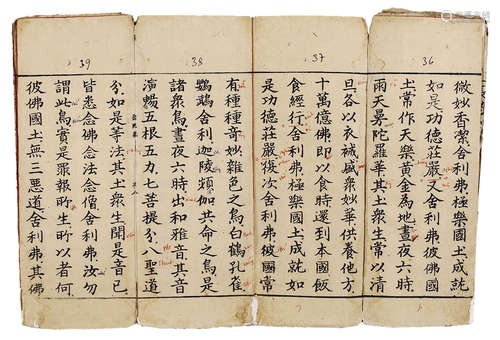 36
微妙香潔舍利弗極樂國土成就
如是功德莊嚴又舍利弗彼佛國
土常作天樂黃金為地晝夜六時
雨天曼陀羅華其土眾生常以清
37
旦各以衣祴盛眾妙華供養他方
十萬億佛即以食時還到本國飯
食經行舍利弗極樂國土成就如
是功德莊嚴復次舍利弗彼國常
38
有種種奇妙雜色之鳥白鶴孔雀
鸚鵡舍利迦陵頻伽共命之鳥是
諸眾鳥晝夜六時出和雅音其音
演暢五根五力七菩提分八聖道
39
分如是等法其土眾生聞是音已
皆悉念佛念法念僧舍利弗汝勿
謂此鳥實是罪報所生所以者何
彼佛國土無三惡道舍利弗其佛